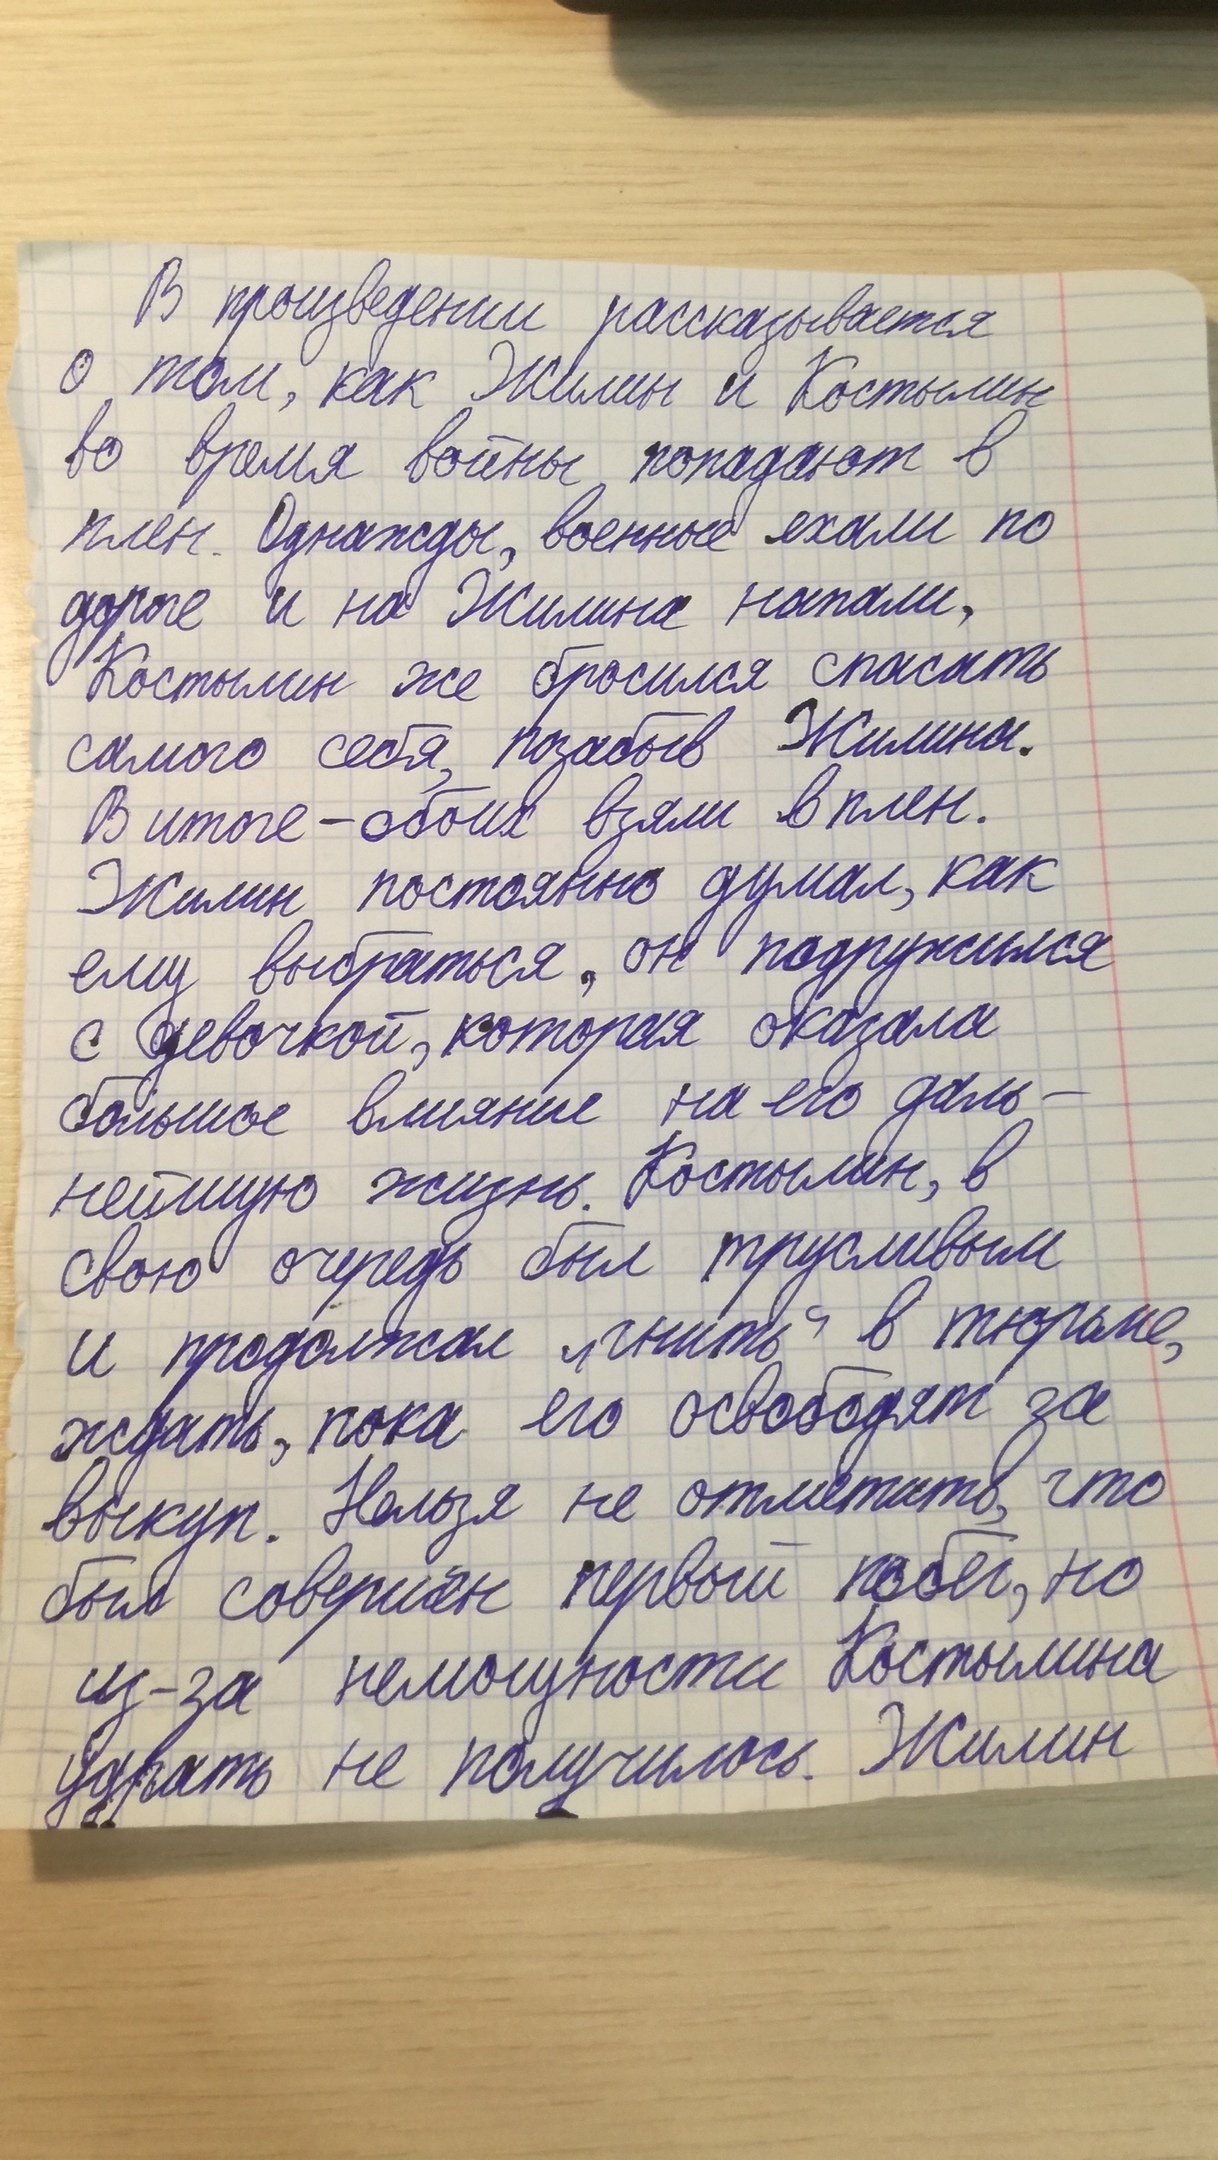 В произведении рассказывается
о том, как Жилин и Костылин
во время войны попадают в
плен. Однажды, военные ехали по
дороге и на Жилина напали,
Костылин же бросился спасать
самого себя, позабыв Жилина.
В итоге - обоих взяли в плен.
Жилин постоянно думал, как
ему выбраться, он подружился
с девочкой, которая оказала
большое влияние на его даль-
нейшую жизнь. Костылин, в
свою очередь был трусливым
и продолжал „гнить“ в тюрьме,
ждать, пока его освободят за
выкуп. Нельзя не отметить, что
был совершён первый побег, но
из-за немощности Костылина
удрать не получилось. Жилин